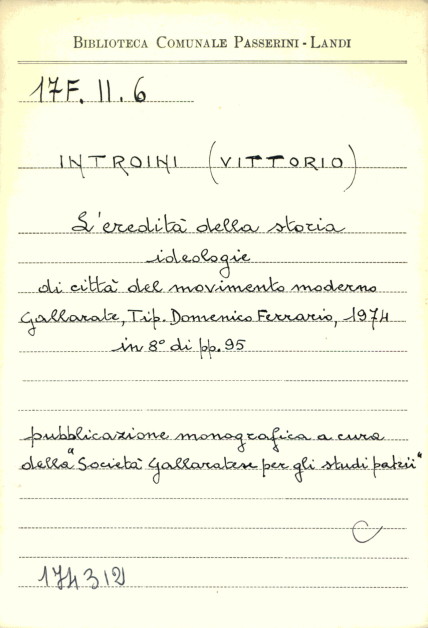 BIBLIOTECA COMUNALE PASSERINI - LANDI
17F. II. 6
INTROINI (VITTORIO)
L'eredità della storia
ideologie
di città del movimento moderno
Gallarate, Tip. Domenico Ferrario, 1974
in 8° di pp. 95
pubblicazione monografica a cura
della "Società Gallaratese per gli studi patrii"
C
174312